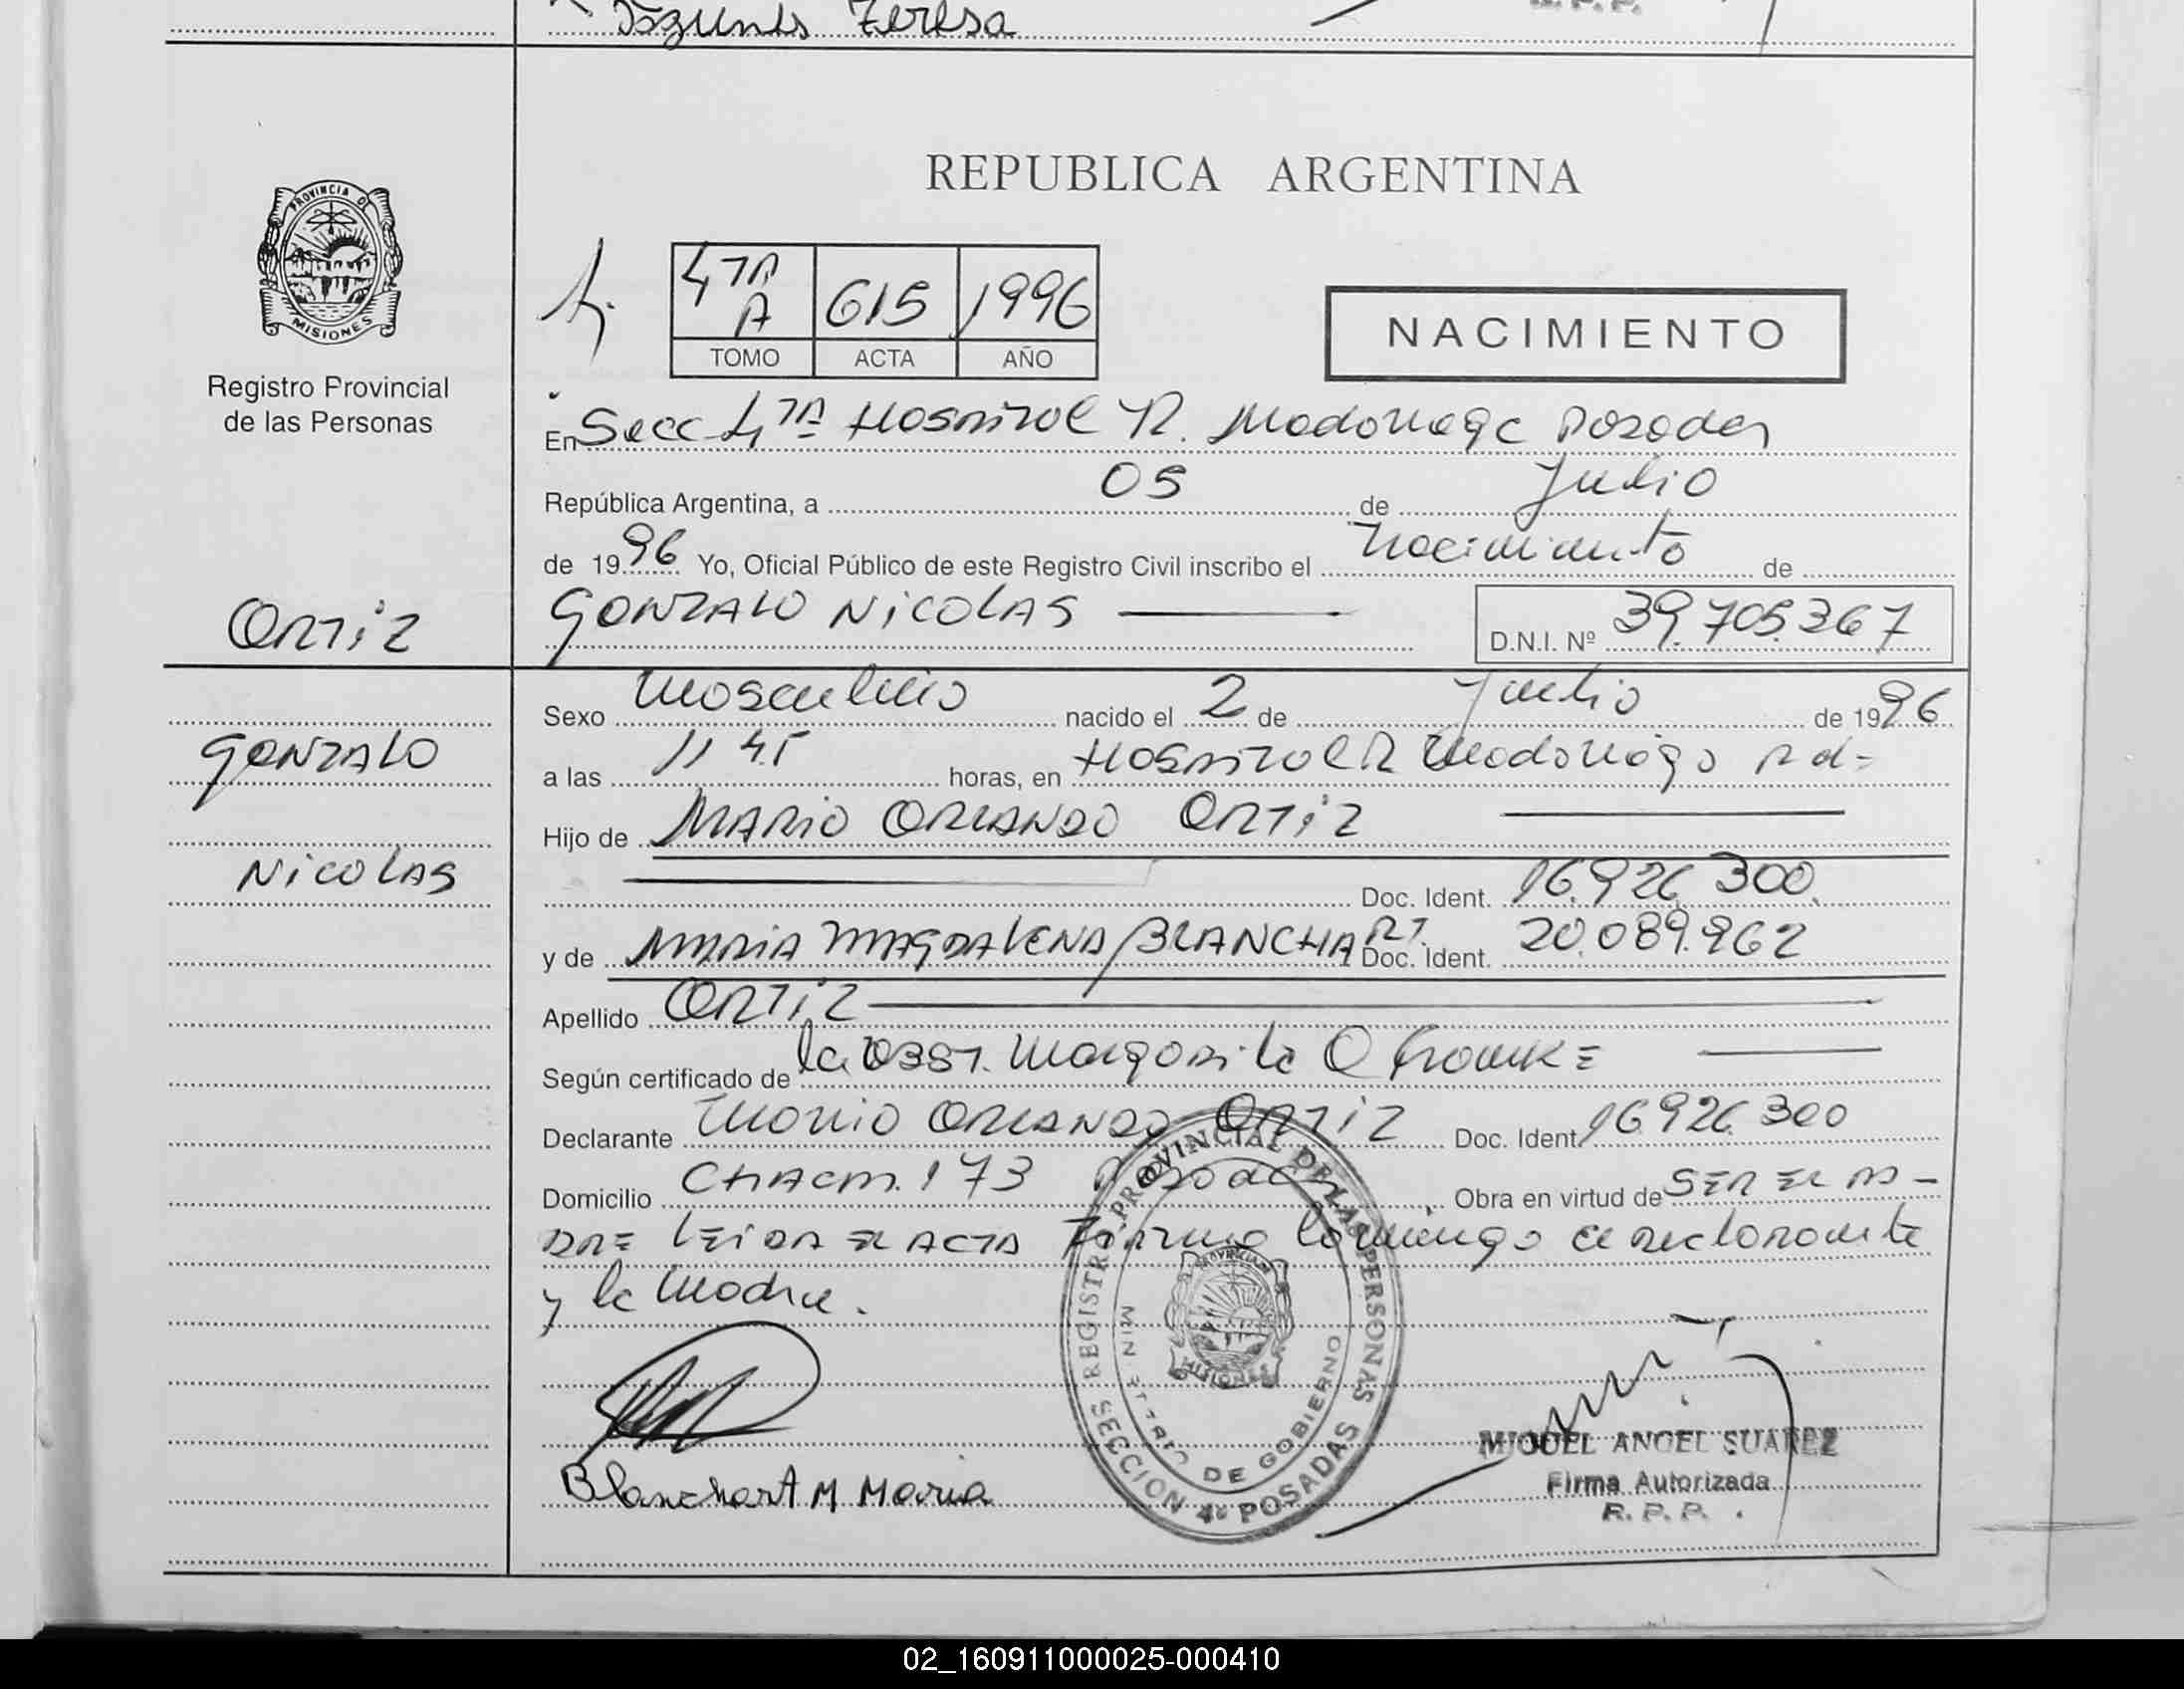 Teresa
R. P. P.
REPUBLICA ARGENTINA
PROVINCIA DE
MISIONES
Registro Provincial
de las Personas
4TA A 615 1996
TOMO ACTA AÑO
NACIMIENTO
En Secc 4TA Hospital R. Madariaga Posadas
República Argentina, a 05 de Julio
de 1996 Yo, Oficial Público de este Registro Civil inscribo el Nacimiento de
Ortiz
GONZALO NICOLAS
D.N.I. Nº 39.705.367
Sexo Masculino nacido el 2 de Julio de 1996
GONZALO
a las 11 45 horas, en Hospital R Madariaga Pd=
Hijo de MARIO ORLANDO ORTIZ
NICOLAS
Doc. Ident. 16.926.300
y de MARIA MAGDALENA BLANCHART Doc. Ident. 20.089.962
Apellido ORTIZ
Según certificado de la Obst. Margarita
Declarante Mario ORLANDO ORTIZ Doc. Ident. 16926.300
Domicilio CHACRA 173 Posadas Obra en virtud de SER EL PA-
DRE LEIDA EL ACTA Firma conmigo el declarante
y la Madre.
Blanchart M Maria
REGISTRO PROVINCIAL DE LAS PERSONAS
MINISTERIO DE GOBIERNO
SECCION 4ª POSADAS
MISIONES
MIGUEL ANGEL SUAREZ
Firma Autorizada
R. P. P.
02_160911000025-000410